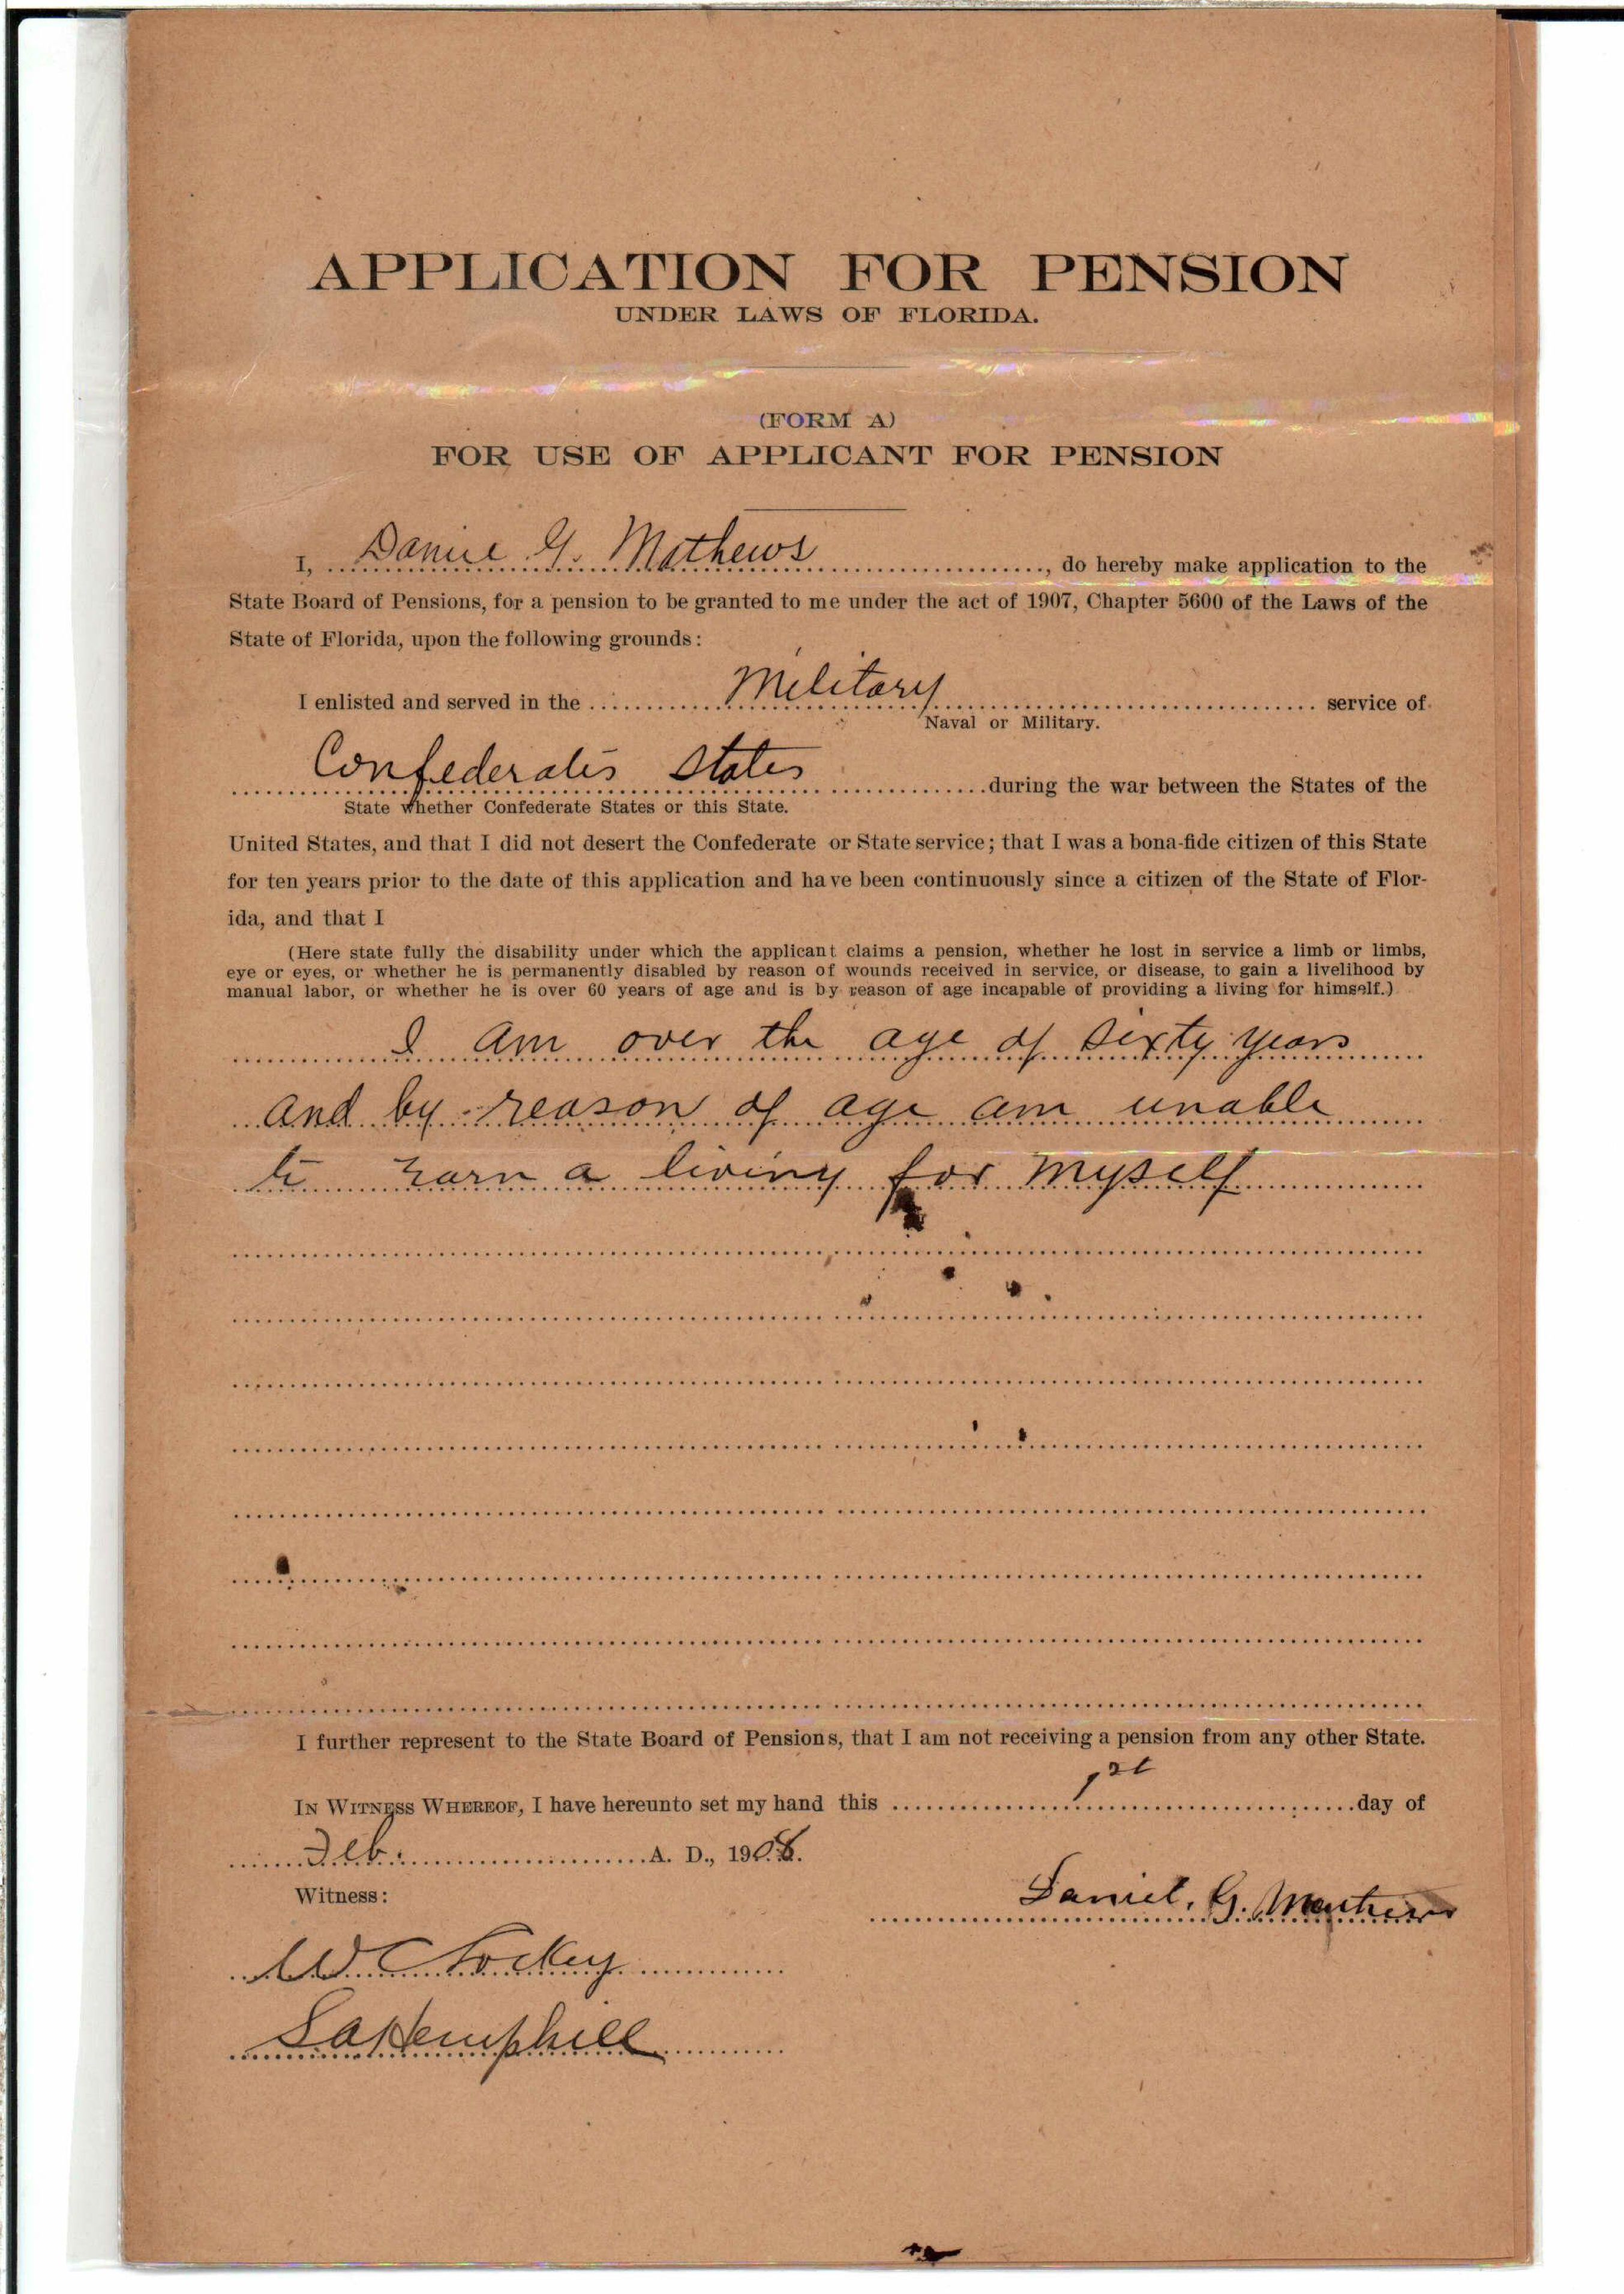 APPLICATION FOR PENSION
UNDER LAWS OF FLORIDA.
(FORM A)
FOR USE OF APPLICANT FOR PENSION
I, Daniel G. Mathews, do hereby make application to the
State Board of Pensions, for a pension to be granted to me under the act of 1907, Chapter 5600 of the Laws of the
State of Florida, upon the following grounds:
I enlisted and served in the Military service of
Naval or Military.
Confederates States during the war between the States of the
State whether Confederate States or this State.
United States, and that I did not desert the Confederate or State service; that I was a bona-fide citizen of this State
for ten years prior to the date of this application and have been continuously since a citizen of the State of Flor-
ida, and that I
(Here state fully the disability under which the applicant claims a pension, whether he lost in service a limb or limbs,
eye or eyes, or whether he is permanently disabled by reason of wounds received in service, or disease, to gain a livelihood by
manual labor, or whether he is over 60 years of age and is by reason of age incapable of providing a living for himself.)
I am over the age of sixty years
and by reason of age am unable
to earn a living for myself
I further represent to the State Board of Pensions, that I am not receiving a pension from any other State.
IN WITNESS WHEREOF, I have hereunto set my hand this 1st day of
Feb. A. D., 1908.
Witness:
Daniel. G. Mathews
W C
S A Hemphill